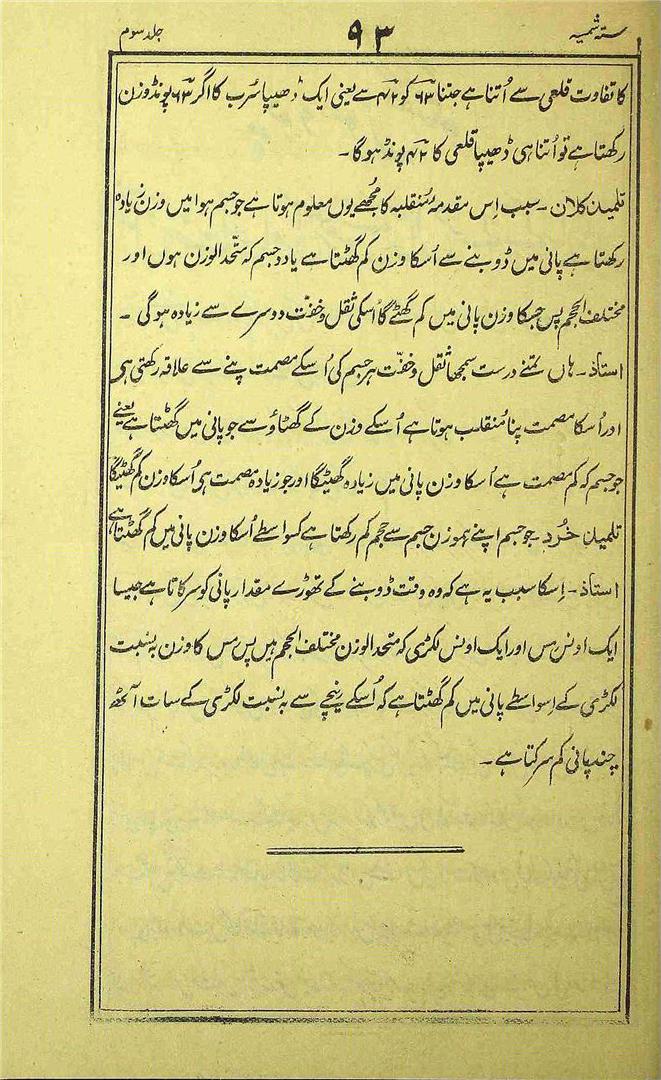 ستہ شمسیہ ۹۳ جلد سوم
کا تفاوت قلعی سے اُتنا ہے جتنا ۶۳ کو ۴۲ سے یعنی ایک ڈھیپا سُرب کا اگر ۶۳ پونڈ وزن
رکھتا ہے تو اُتنا ہی ڈھیپا قلعی کا ۴۲ پونڈ ہوگا ۔
تلمیذ کلان ۔ سبب اِس مقدمۂ مُنقلبہ کا مُجھے یوں معلوم ہوتا ہے جو جسم ہوا میں وزن زیادہ
رکھتا ہے پانی میں ڈوبنے سے اُسکا وزن کم گھٹتا ہے یا دو جسم کہ متّحد الوزن ہوں اور
مختلف الحجم پس جسکا وزن پانی میں کم گھٹے گا اُسکی ثقل و خفّت دوسرے سے زیادہ ہوگی ۔
استاذ ۔ ہاں تمنے درست سمجھا ثقل و خفّت ہر جسم کی اُسکے مصمت پنے سے علاقہ رکھتی ہی
اور اُسکا مصمت پنا مُنقلب ہوتا ہے اُسکے وزن کے گھٹاؤ سے جو پانی میں گھٹتا ہے یعنے
جو جسم کہ کم مصمت ہے اُسکا وزن پانی میں زیادہ گھٹیگا اور جو زیادہ مصمت ہی اُسکا وزن کم گھٹیگا
تلمیذ خُرد ۔ جو جسم اپنے ہموزن جسم سے حجم کم رکھتا ہے کسواسطے اُسکا وزن پانی میں کم گھٹتا ہے
استاذ ۔ اِسکا سبب یہ ہے کہ وہ وقت ڈوبنے کے تھوڑے مقدار پانی کو سرکاتا ہے جیسا
ایک اونس مِس اور ایک اونس لکڑی کہ متحد الوزن مختلف الحجم ہیں پس مس کا وزن بہ نسبت
لکڑی کے اِسواسطے پانی میں کم گھٹتا ہے کہ اُسکے نیچے سے بہ نسبت لکڑی کے سات آٹھ
چند پانی کم سرکتا ہے ۔